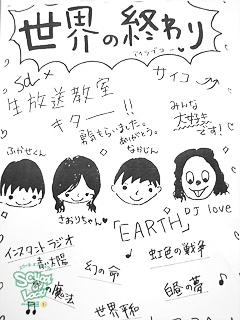 世界の終わり
アイラブユー
SOL×
生放送教室
キター!!
サイコー
みんな
大好き
です!
ありがとう。
ふかせくん
さおりちゃん
なかじん
DJ love
「EARTH」
インスタントラジオ
青い太陽
幻の命
虹色の戦争
白昼の夢
の魔法
世界平和
SCHOOL
OF
LOCK!